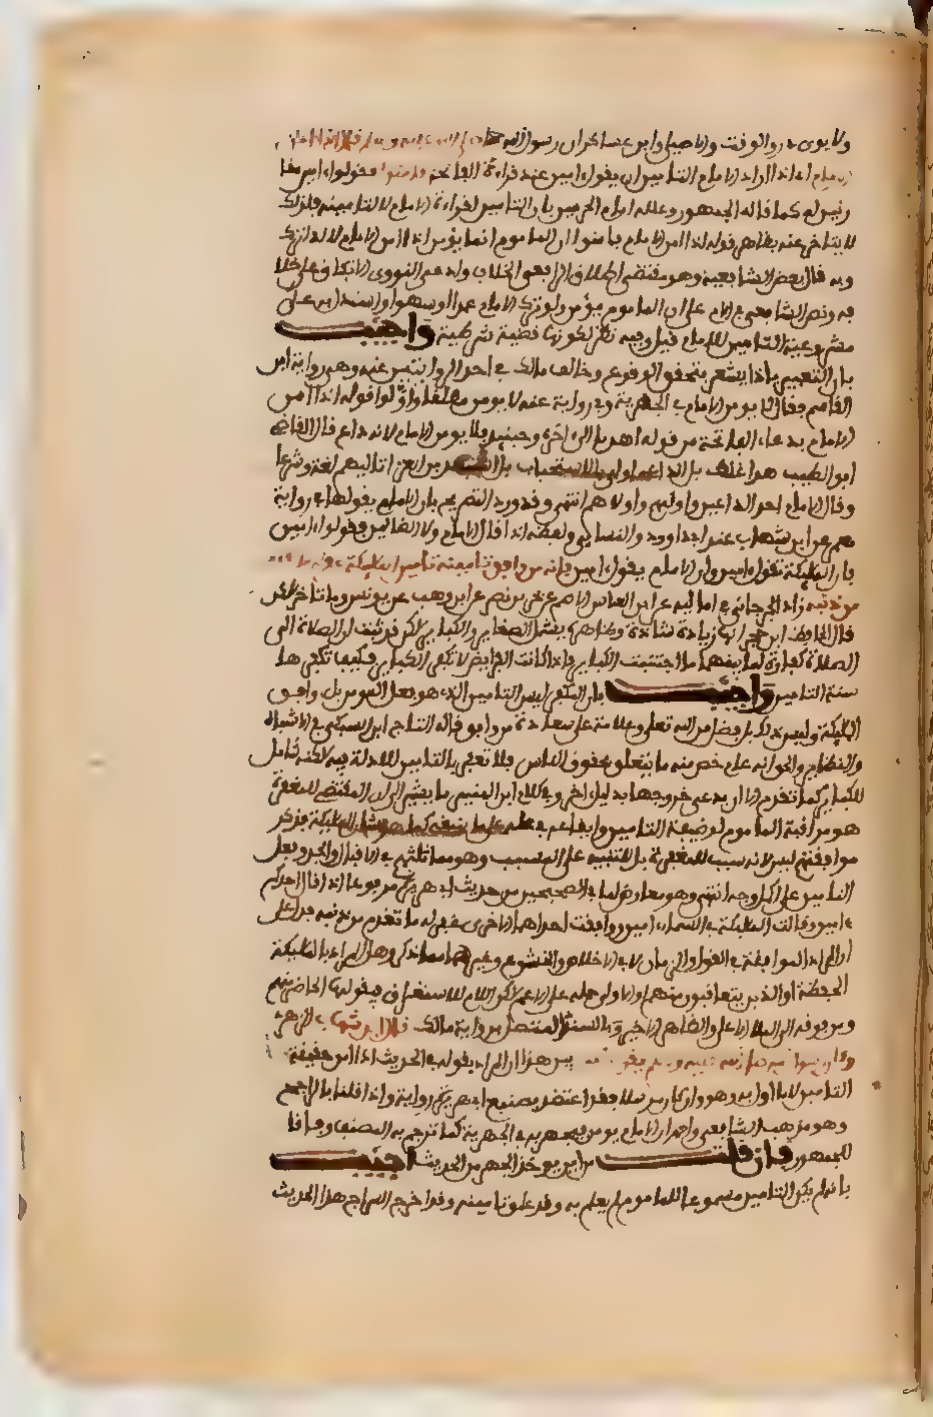 ولابوى ذر والوقت والاصيلي وابن عساكر ان رسول الله صلى الله عليه وسلم قال اذا امن
الامام اي اذا اراد الامام التامين ان يقول امين عند قراءة الفاتحة فامنوا فقولوا امين
كما قاله الجمهور وعلله امام الحرمين بان التامين لقراءة الامام لا لتامينه فلذلك
لا يتاخر عنه وظاهر قوله اذا امن الامام فامنوا ان الماموم انما يؤمن اذا امن الامام لا اذا ترك
وبه قال بعض الشافعية وهو مقتضى اطلاق الرافعي الخلاف وادعى النووي الاتفاق على خلا
فه ونص الشافعي في الام على ان الماموم يؤمن ولو ترك الامام عمدا او سهوا واستدل به على
مشروعية التامين للامام قيل وفيه نظر لكونها قضية شرطية واجيب
بان التعبير باذا يشعر بتحقق الوقوع وخالف مالك في احدى الروايتين عنه وهي رواية ابن
القاسم فقال لا يؤمن الامام في الجهرية وفي رواية عنه لا يؤمن مطلقا واولوا قوله اذا امن
الامام بدعاء الفاتحة من قوله اهدنا الى اخره وحينئذ فلا يؤمن الامام لانه داع قال القاضي
ابو الطيب هذا غلط بل الداعي اولى بالاستحباب
وقال الامام احد الداعين واولهم واولاهم انتهى وقد ورد التصريح بان الامام يقولها في رواية
معمر عن ابن شهاب عند ابي داوود والنسايي ولفظه اذا قال الامام ولا الضالين فقولوا امين
فان المليكة تقول امين وان الامام يقول امين فانه من وافق تامينه تامين المليكة غفر له ما تقدم
من ذنبه زاد الجرجاني في اماليه عن ابي العباس الاصم عن بحر بن نصر عن ابن وهب عن يونس وما تاخر لكن
قال الحافظ ابن حجر انها زيادة شاذة وظاهره يشمل الصغاير والكباير لكن قد ثبت ان الصلاة الى
الصلاة كفارة لما بينهما ما اجتنبت الكباير فاذا كانت الفرايض لا تكفر الكباير فكيف تكفرها
سنة التامين واجيب بان المكفر ليس التامين الذي هو فعل المومن بل وفاق
المليكة وليس ذلك بل فضل من الله تعالى وعلامة على سعادة من وافق قاله التاج ابن السبكي في الاشباه
والنظاير والحق انه عام خص منه ما يتعلق بحقوق الناس فلا تغفر بالتامين للادلة فيه لكنه شامل
للكباير كما تقدم الا ان يدعى خروجها بدليل اخر وفي كلام ابن المنير ما يشير الى ان المقتضي للمغفرة
هو مراقبة الماموم لوظيفة التامين وايقاعه في محله على ما ينبغي كما هو شان المليكة فذكر
موافقتهم ليس لانه سبب للمغفرة بل للتنبيه على المسبب وهو مماثلتهم في الاقبال والجد وفعل
التامين على اكمل وجه انتهى وهو معارض لما في الصحيحين من حديث ابي هريرة مرفوعا اذا قال احدكم
امين وقالت المليكة في السماء امين ووافقت احداهما الاخرى غفر له ما تقدم من ذنبه فدل على
ان المراد الموافقة في القول والزمان لا في الاخلاص والخشوع وغيرهما مما ذكر وهل المراد بالمليكة
الحفظة او الذين يتعاقبون منهم او الاولى حمله على الاعم لان اللام للاستغراق فيقولها الحاضر منهم
ومن فوقه الى الملا الاعلى والظاهر الاخير وبالسند المتصل من رواية مالك قال ابن شهاب الزهري
وكان رسول الله صلى الله عليه وسلم يقول امين بين بهذا ان المراد بقوله في الحديث اذا امن حقيقة
التامين لا ما اول به وهو وان كان مرسلا فقد اعتضد بصنيع ابي هريرة راويه واذا قلنا بالراجح
وهو مذهب الشافعي واحمد ان الامام يومن فيجهر به في الجهرية كما ترجم به المصنف وفاقا
للجمهور فان قلت من اين يوخذ الجهر من الحديث اجيب
بانه لو لم يكن التامين مسموعا للماموم لم يعلم به وقد علق تامينه وقد اخرج السراج هذا الحديث